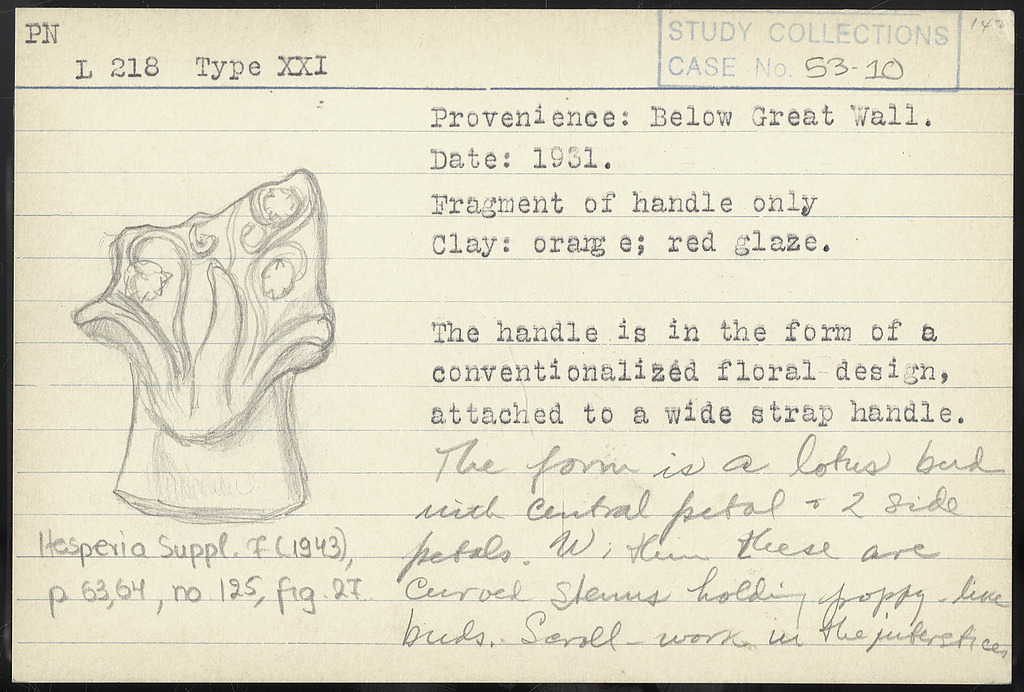 PN
L 218 Type XXI
STUDY COLLECTIONS
CASE No. 53-10
142
Provenience: Below Great Wall.
Date: 1931.
Fragment of handle only
Clay: orang e; red glaze.
The handle is in the form of a
conventionalized floral design,
attached to a wide strap handle.
The form is a lotus bud
with central petal + 2 side
petals. Within these are
curved stems holding poppy-like
buds. Scroll-work in the interstices
Hesperia Suppl. 7 (1943),
p 63,64, no 125, fig. 27.